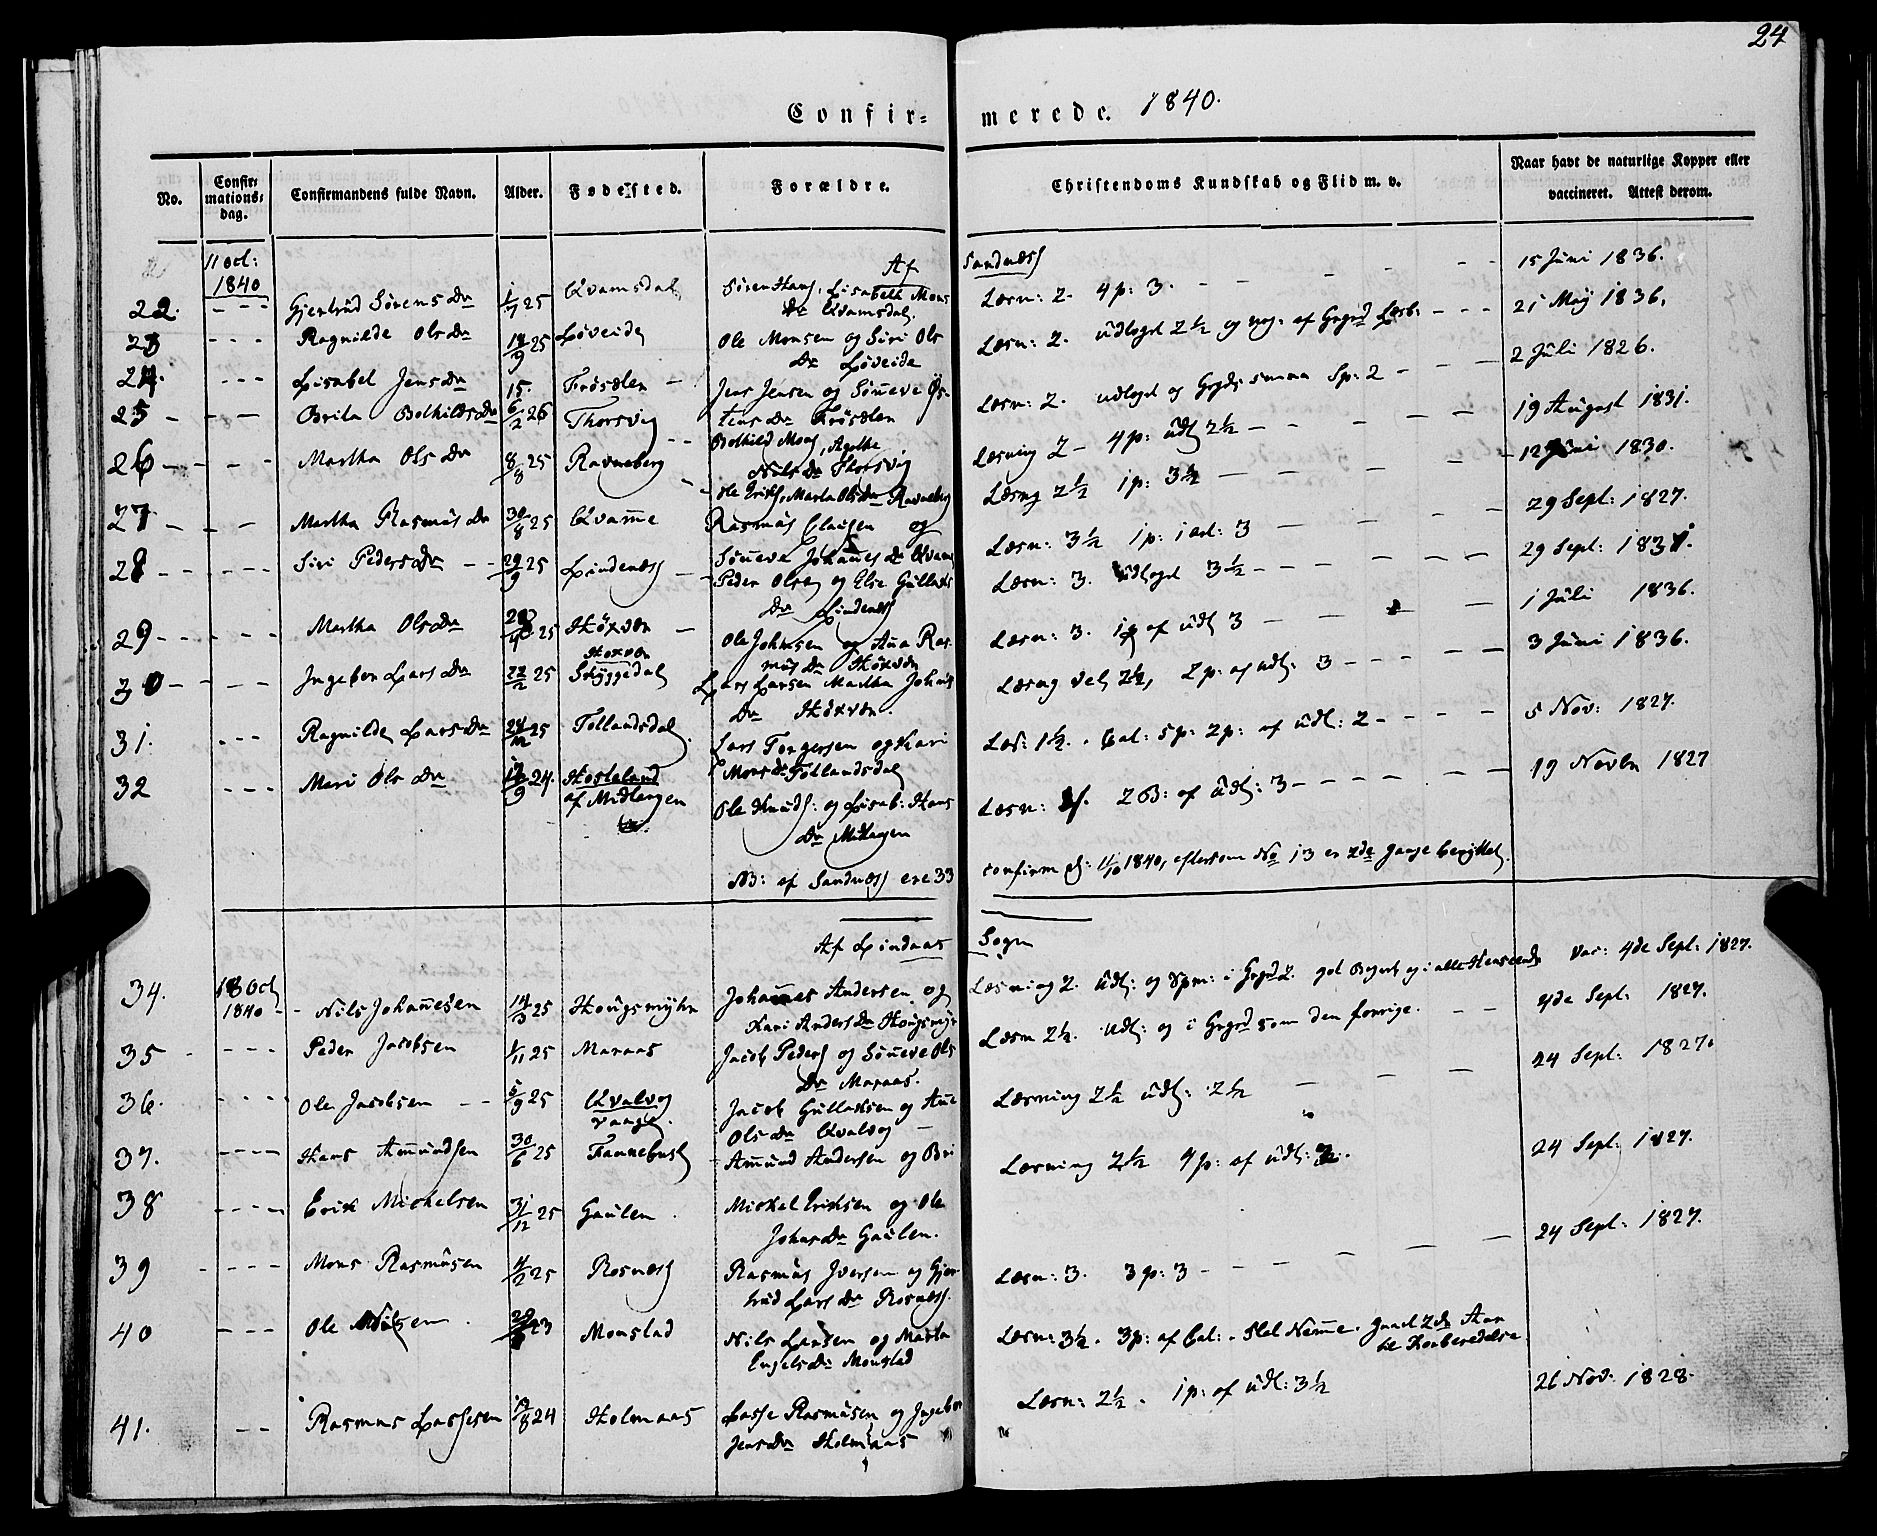 24
Confir- merede. 1840.
No. Confir- mations- dag. Confirmandens fulde Navn. Alder. Fødested. Forældre. Christendoms Kundskab og Flid m. v. Naar havt de naturlige Kopper eller vaccineret. Attest derom.
11 Oct: 1840
Af Sandnæss
22. Gjertrud Sørens Dr 1/7 25 Qvamsdal Søren Hans, Lisabeth Mons Dr Qvamsdal. Læsn: 2. 4 p: 3. 15 Juni 1836.
23 Ragnilde Ols Dr 18/9 25 Løveide Ole Monsen og Siri Ols Dr Løveide Læsn: 2. udlagd 2½ og af 21 Maj 1836.
24. Lisabel Jens Dr 15. Frøsølen Jens Jensen og Sønneve Øs- tens Dr Frøsølen Læsn: 2. udlagd og Sp: 2 2 Juli 1826.
25 Brita Bothilds Dr 6/2 26 Thorsvig Bothild Mons, Agathe Nils Dr Thorsvig Læsning 2 - 4 p: udl 2½ 19 August 1831.
26 Martha Ols Dr 8/8 25 Ravneberg Ole Erichs, Marta Ols Dr Ravneberg Læsng 2½ 1 p: 3½ 12 Juni 1830.
27 Martha Rasmus Dr 30/8 25 Qvamme Rasmus Clausen og Sønneve Johannes Dr Qvam Læsn: 3½ 1 p: 1 art: 3 29 Sept: 1827.
28 Siri Peders Dr 29/9 25 Lindenæss Peder Olsen og Else Gullaks Dr Lindenæss Læsn: 3. udlagd 3½ 29 Sept: 1831.
29 Martha Ols Dr 25 Høxven Ole Johnsen og Ana Ras- mus Dr Høxven Læsn: 3. 1 p af udl 3 1 Juli 1836.
30 Ingebor Lars Dr 22/2 25 Høxven Styggedal Lars Larsen Martha Johns Dr Høxven. Læsng vel 2½, 2 p: af udl: 3 3 Juni 1836.
31. Ragnilde Lars Dr 25 Follandsdal Lars Torgersen og Kari Mons Dr Follandsdal Læs: 1½. Cat: 5 p: 2 p: af udl: 2 5 Nov: 1827.
32 Mari Ols Dr 24. Hosteland af Midtangen Ole Knuds: og Lisab: Hans Dr Midtangen Læsn: 2 B: af udl: 3 19 Novbr 1827
NB: af Sandnæss ere 33 confirm d: 11/10 1840, eftersom No 13 er 2de gange benyttet.
Af Lindaas Sogn
34. 18 Oct 1840 Nils Johannesen 14/3 25 Hougsmyhr Johannes Andersen og Kari Anders Dr Hougsmyr Læsning 2. udl: og Spm: i god Begreb og i alle Henseende Vac: 4de Sept: 1827.
35 Peder Jacobsen 1/11 25 Maraas Jacob Peders og Sønneve Ols Dr Maraas. Læsn 2½. udl: og i som den forrige. 4de Sept: 1827.
36. Ole Jacobsen 5/9 25 Qvalvog vaage. Jacob Gullaksen og Ane Ols Dr Qvalvog Læsning 2½ udl: 2½ 24 Sept: 1827.
37. Hans Amundsen 30/6 25 Fannebust Amund Andersen og Bri Læsning 2½ 4 p: af udl: 24 Sept: 1827.
38 Erik Mickelsen 31/12 25 Gaulen. Mickel Eriksen og Ole Johns Dr Gaulen. 24 Sept: 1827.
39 Mons Rasmusen 4/2 25 Rosnæss Rasmus Iversen og Gjer- trud Lars Dr Rosnæss. Læsn: 3. 3 p: 3
40 Ole Nilsen. 23 Monstad Nils Larsen og Marta Engels Dr Monstad Læsn: 3½. 3 p: af Cat: . Slet Nemme. gaaet 2de Aar til Forberedelse.
41. Rasmus Lassesen 24 Holmaas Lasse Rasmusen og Ingebor Jens Dr Holmaas Læsn: 2½. 1 p: af udl: 3½ 26 Nov: 1828.